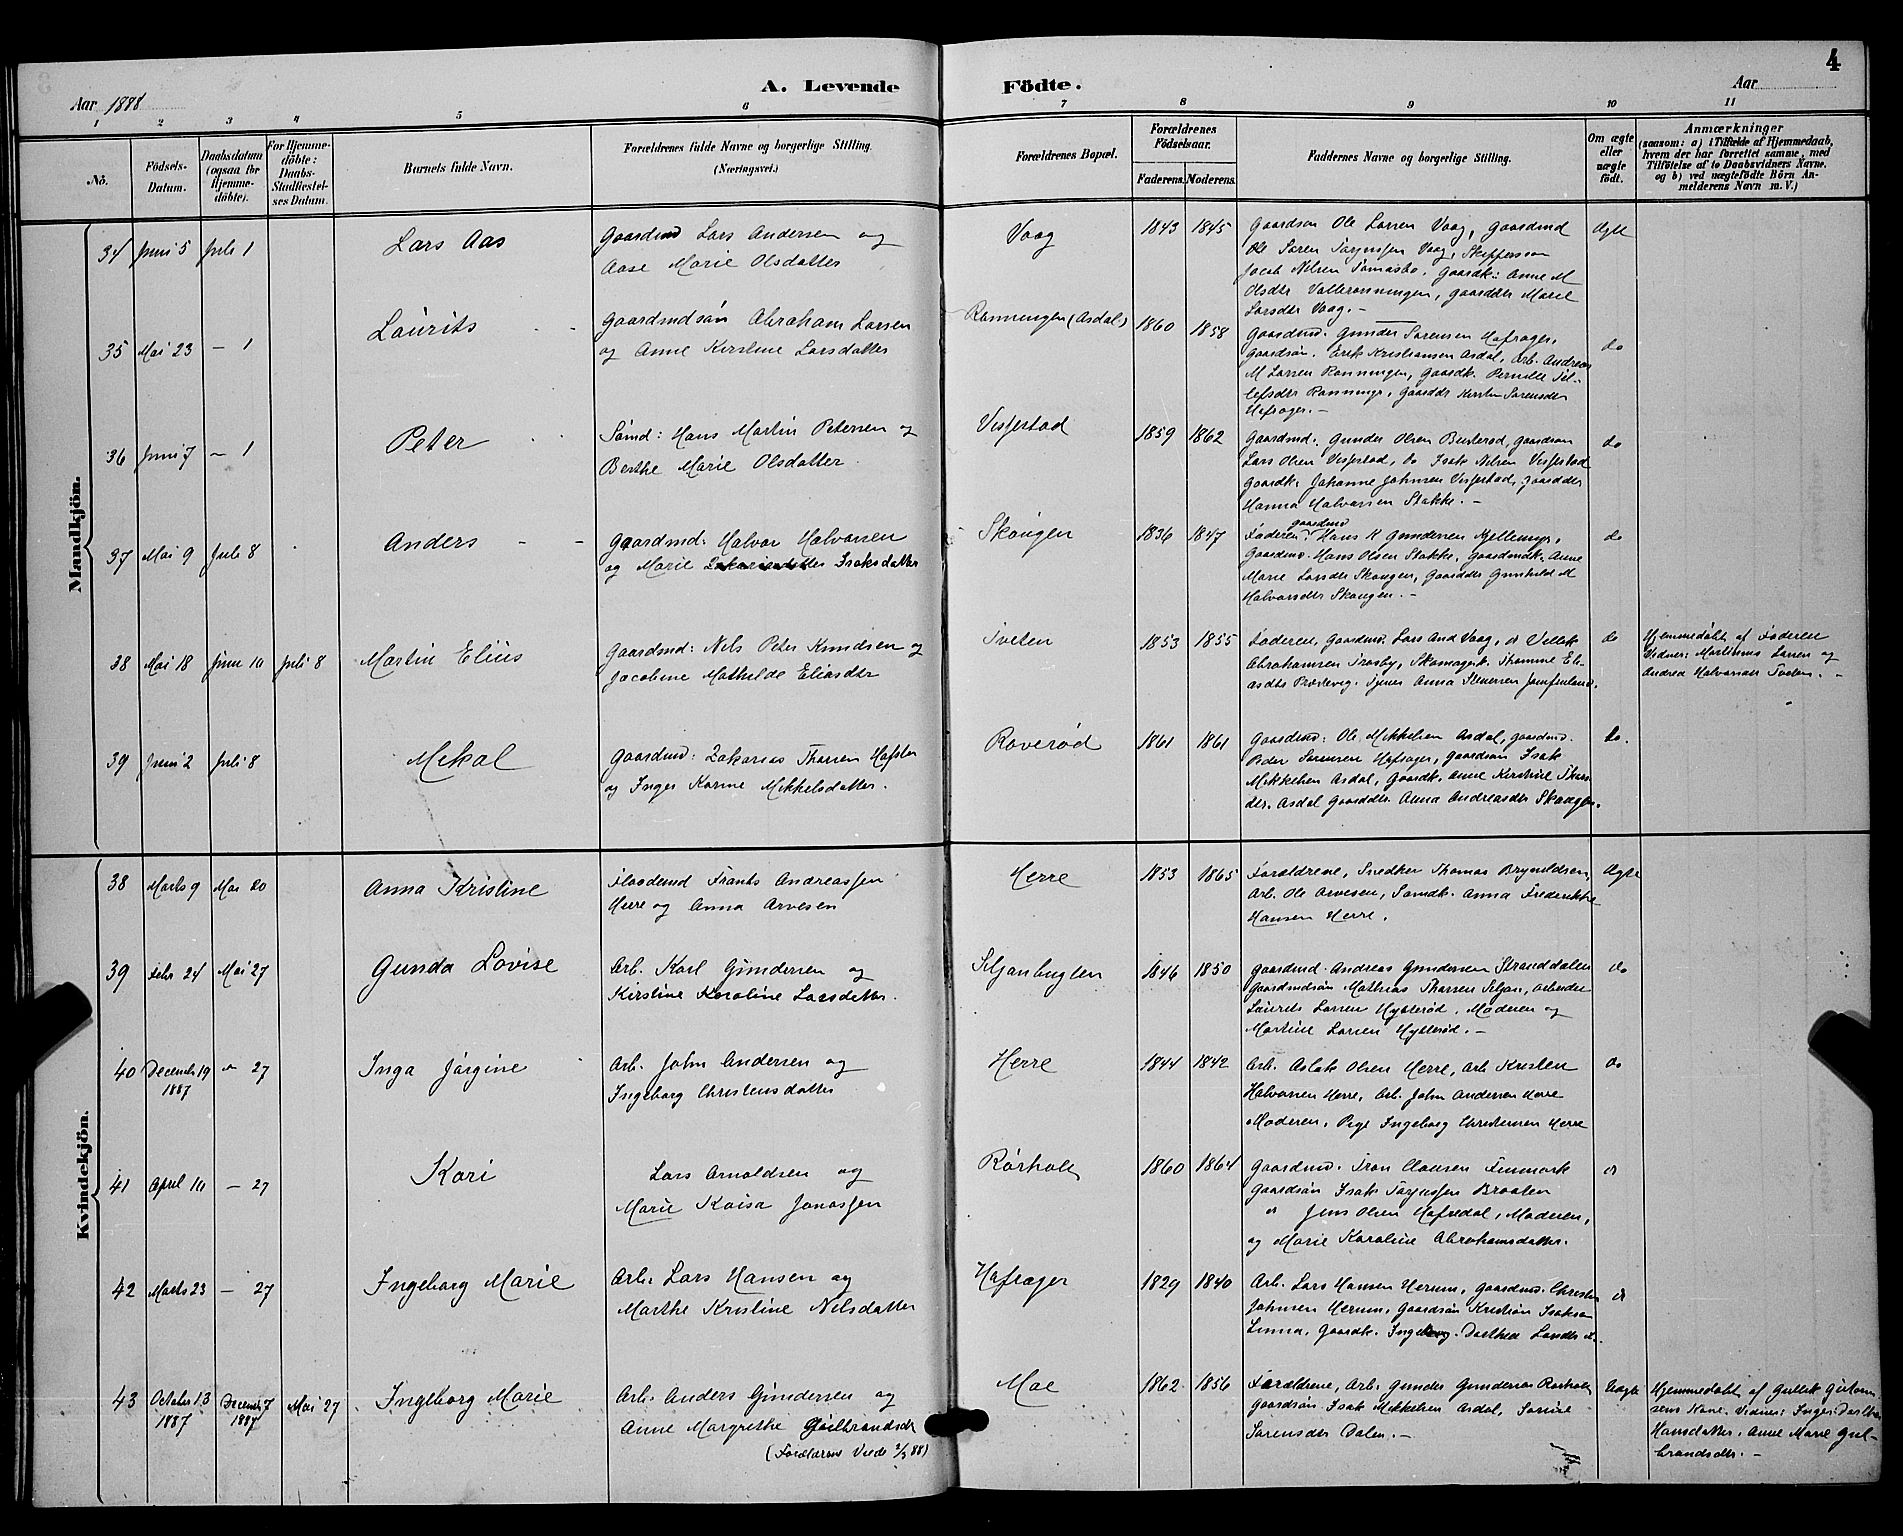 4
Aar 1888
A. Levende Födte.
Aar
1 2 3 4 5 6 7 8 9 10 11
No.
Födsels-
Datum.
Daabsdatum
(ogsaa for
Hjemme-
döbte).
For Hjemme-
döbte:
Daabs-
Stadfæstel-
ses Datum.
Barnets fulde Navn.
Forældrenes fulde Navne og borgerlige Stilling.
(Næringsvei.)
Forældrenes Bopæl.
Forældrenes
Födselsaar.
Faderens. Moderens.
Faddernes Navne og borgerlige Stilling.
Om ægte
eller
uægte
födt.
Anmærkninger
(saasom: a) i Tilfælde af Hjemmedaab,
hvem der har forrettet samme, med
Tilföielse af to Daabsvidners Navne.
og b) ved uægtefödte Börn An-
melderens Navn m. V.)
Mandkjön.
34 Juni 5 Juli 1
Lars Aas
Gaardmd Lars Andersen og
Aase Marie Olsdatter
Vaag
1843 1845
Gaardsøn Ole Larsen Vaag, Gaardmd
Ole Søren Tarjussen Vaag, Skippersøn
Jacob Nilsen Tomasbo, Gaardk: Anne M
Olsdtr Vallerønningen, gaarddtr Marie
Larsdtr Vaag. –
Ægte
35 Mai 23 – 1
Laurits
Gaardmdsøn Abraham Larsen
og Anne Kirstine Larsdatter
Rønningen (Asdal)
1860 1858
Gaardmd. Gunder Sørensen Hafsager,
Gaardsøn. Erik Kristiansen Asdal, Arb. Andreas
M Larsen Rønningen, Gaardk. Pernille Til-
lefsdtr Rønninge, Gaarddtr Kirsten Sørensdtr
Hafsager. –
do
36 Juni 7 – 1
Peter
Sømd: Hans Martin Petersen og
Berthe Marie Olsdatter
Vissestad
1859 1862
Gaardmd. Gunder Olsen Busterød, gaardsøn
Lars Olsen Vissestad, do Isak Nilsen Vissestad
Gaardk. Johanne Johnsen Vissestad, gaarddtr
Hanna Halvorsen Stokke. –
do
37 Mai 9 Juli 8
Anders
Gaardmd: Halvor Halvorsen
og Marie Isaksdatter
Skougen
1836 1847
Faderen, gaardmd Hans H Gundersen Kjellemyr,
Gaardmd. Hans Olsen Stokke, Gaardmdk. Anne
Marie Larsdtr Skougen, Gaarddtr Gunhild M
Halvorsdtr Skougen. –
do
38 Mai 18 Juni 10 Juli 8
Martin Elius
Gaardmd: Nils Peter Knudsen og
Jacobine Mathilde Eliasdtr
Tveten
1853 1855
Faderen, Gaardmd. Lars And Vaag, Vellek
Abrahamsen Trosby, Skomagerk. Thomine Eli-
asdtr Prestevig. Tjener Anna Stenersen Jomfruland.
do
Hjemmedøbt af Faderen
Vidner: Mortinus Larsen og
Andrea Halvorsen Tveten. –
39 Juni 2 Juli 8
Mekal
Gaardmd: Zakarias Thorsen Hafsten
og Inger Karine Mikkelsdatter.
Røverød
1861 1861
Gaardmd: Ole Mikkelsen Asdal, gaardmd.
Peder Sørensen Hafsager, gaardsøn Isak
Mikkelsen Asdal, Gaardk. Anne Kirstine Thors-
dtr. Asdal Gaarddtr. Anna Andreasdtr Skougen.
do.
Kvindekjön.
38 Marts 9 Mai 20
Anna Kristine
Flødemd Frants Andreassen
Herre og Anna Arvesen
Herre
1853 1865
Forældrene, Snedker Thomas Brynildsen,
Arb. Ole Arvesen, Sømdk. Anna Frederikke
Hansen Herre.
Ægte
39 Febr 24 Mai 27
Gunda Lovise
Arb. Karl Gundersen og
Kirstine Karoline Larsdatter.
Siljanbugten
1846 1850
Gaardmd. Andreas Gundersen Stranddalen
Gaardmdsøn Mathias Thorsen Siljan, arbeider
Laurits Larsen Hyblerød, Moderen og
Martine Larsen Hyblerød. –
do
40 December 19
1887
" 27
Inga Jørgine
Arb. John Andersen og
Ingeborg Christensdatter
Herre
1844 1842
Arb. Aslak Olsen Herre, Arb Kristen
Halvorsen Herre, Arb. John Andersen Herre
Moderen, Pige Ingeborg Christensen Herre
do
41 April 10 – 27
Kari
Lars Arnoldsen og
Marie Kaisa Jonassen
Rørholt
1860 1864
Gaardmd. Tron Clausen Finmark
Gaardsøn Isak Tarjussen Braaten
" Jens Olsen Hafredal, Moderen,
og Marie Karoline Abrahamsdatter.
"
42 Marts 23 – 27
Ingeborg Marie
Arb: Lars Hansen og
Marthe Kristine Nilsdatter
Hafsager
1829 1840
Arb. Lars Hansen Herum, Gaardmd. Christen
Johnsen Herum, Gaardsøn Kristian Isaksen
Linna, Gaardk. Ingeborg Dorthea
"
43 October 13
1887
December 7
1887
Mai 27
Ingeborg Marie
Arb. Anders Gundersen og
Anne Margrethe Gulbrandsdtr
(Forældrene Viede 2/3 88)
Moe
1862 1856
Forældrene, Arb. Gunder Gundersen Rørholt
Gaardsøn Isak Mikkelsen Asdal, Sørine
Sørensdtr Dalen. –
Uægte
Hjemmedøbt af Gullek Guttorm-
sens Kone. Vidner: Inger Dorthea
Hansdatter, Anne Marie Gul-
brandsdtr. –